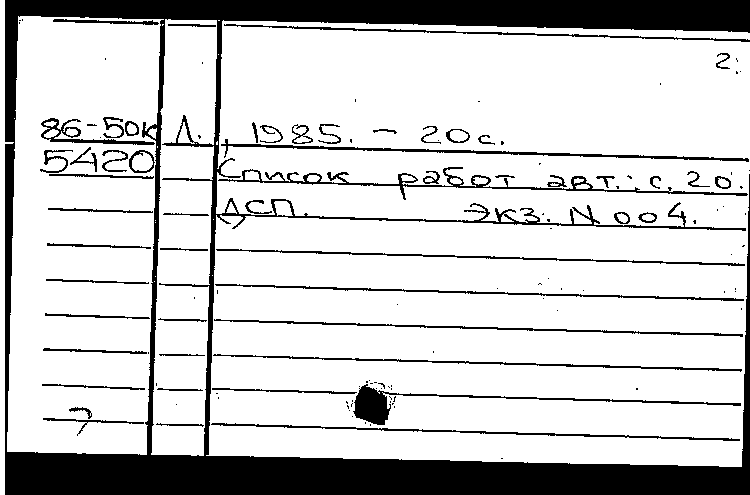 2.
86-50к Л., 1985. - 20 с.
5420 Список работ авт.: с. 20.
ДСП. Экз. N 004.